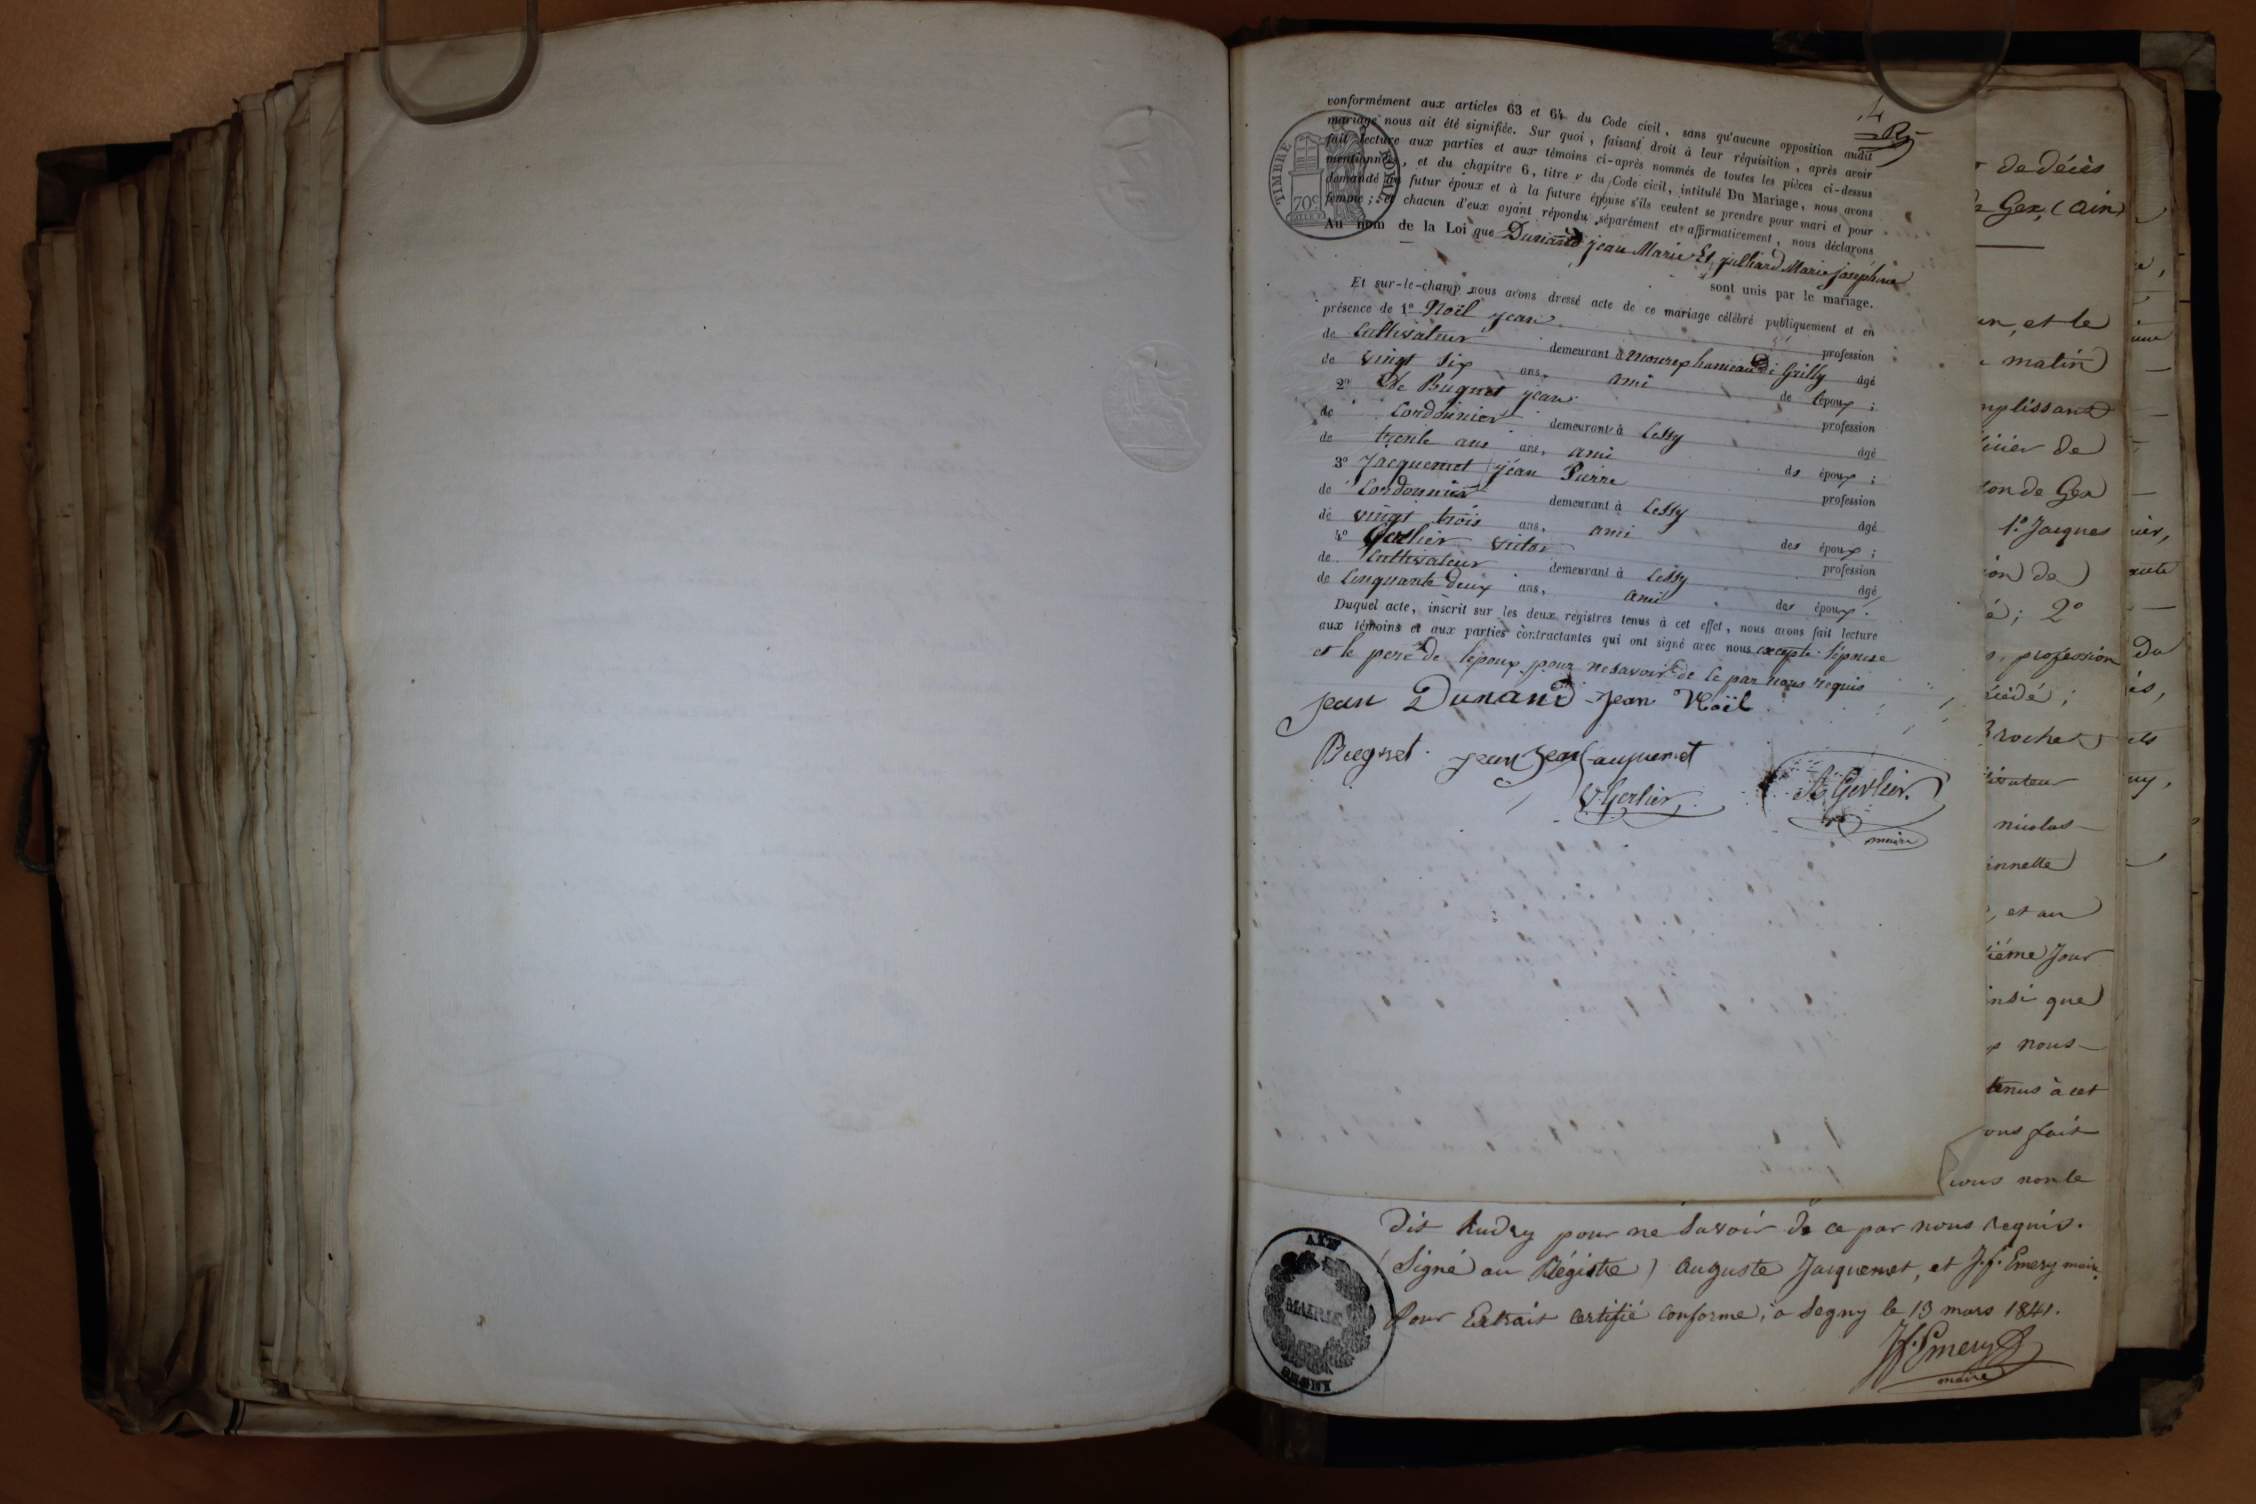 4
conformément aux articles 63 et 64 du Code civil, sans qu'aucune opposition audit
mariage nous ait été signifiée. Sur quoi, faisant droit à leur réquisition, après avoir
fait lecture aux parties et aux témoins ci-après nommés de toutes les pièces ci-dessus
mentionnées, et du chapitre 6, titre v du Code civil, intitulé Du Mariage, nous avons
demandé au futur époux et à la future épouse s'ils veulent se prendre pour mari et pour
femme; et chacun d'eux ayant répondu séparément et affirmativement, nous déclarons
Au nom de la Loi que Dunand jean Marie Et julliard Marie joséphine
sont unis par le mariage.
Et sur-le-champ nous avons dressé acte de ce mariage célébré publiquement et en
présence de 1º Noël jean profession
de Cultivateur demeurant à mourex hameau de Grilly âgé
de vingt six ans, ami de l'époux;
2º de Bugnet jean profession
de Cordonnier demeurant à Cessy âgé
de trente ans ans, ami de époux;
3º Jacquemet jéan Pierre profession
de Cordonnier demeurant à Cessy âgé
de vingt trois ans, ami des époux;
4º Gerlier victor profession
de Cultivateur demeurant à Cessy âgé
de Cinquante deux ans, ami des époux.
Duquel acte, inscrit sur les deux registres tenus à cet effet, nous avons fait lecture
aux témoins et aux parties contractantes qui ont signé avec nous excepté l'épouse
et le pere de lepoux pour ne savoir de ce par nous requis
jean Dunand jean Noël
Bugnet jean jacquemet
V. Gerlier A Gerlier.
maire
TIMBRE ROYAL
70c
de décès
Gex, (Ain)
un, et le
matin
mplissant
icier de
ton de Gex
1º Jacques
ion de
é; 2º
, profession
écédé;
Broche
tivateur
nicolas
innette
, et au
ième Jour
insi que
nous
tenus à cet
ons fait
nous non le
dit Audry pour ne savoir de ce par nous requis.
(Signé au Régistre) Auguste Jacquemet, et J. f. Emery maire.
Pour Extrait certifié conforme, à Segny le 13 mars 1841.
J f. Emery
maire
AIN
MAIRIE